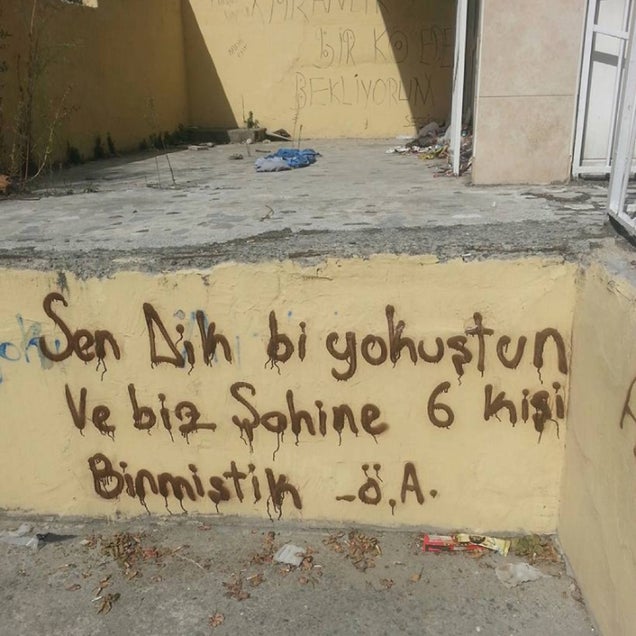 BİR KÖŞEDE
BEKLİYORUM
Sen Dik bi yokuştun
Ve biz Şahine 6 kişi
Binmiştik -Ö.A.